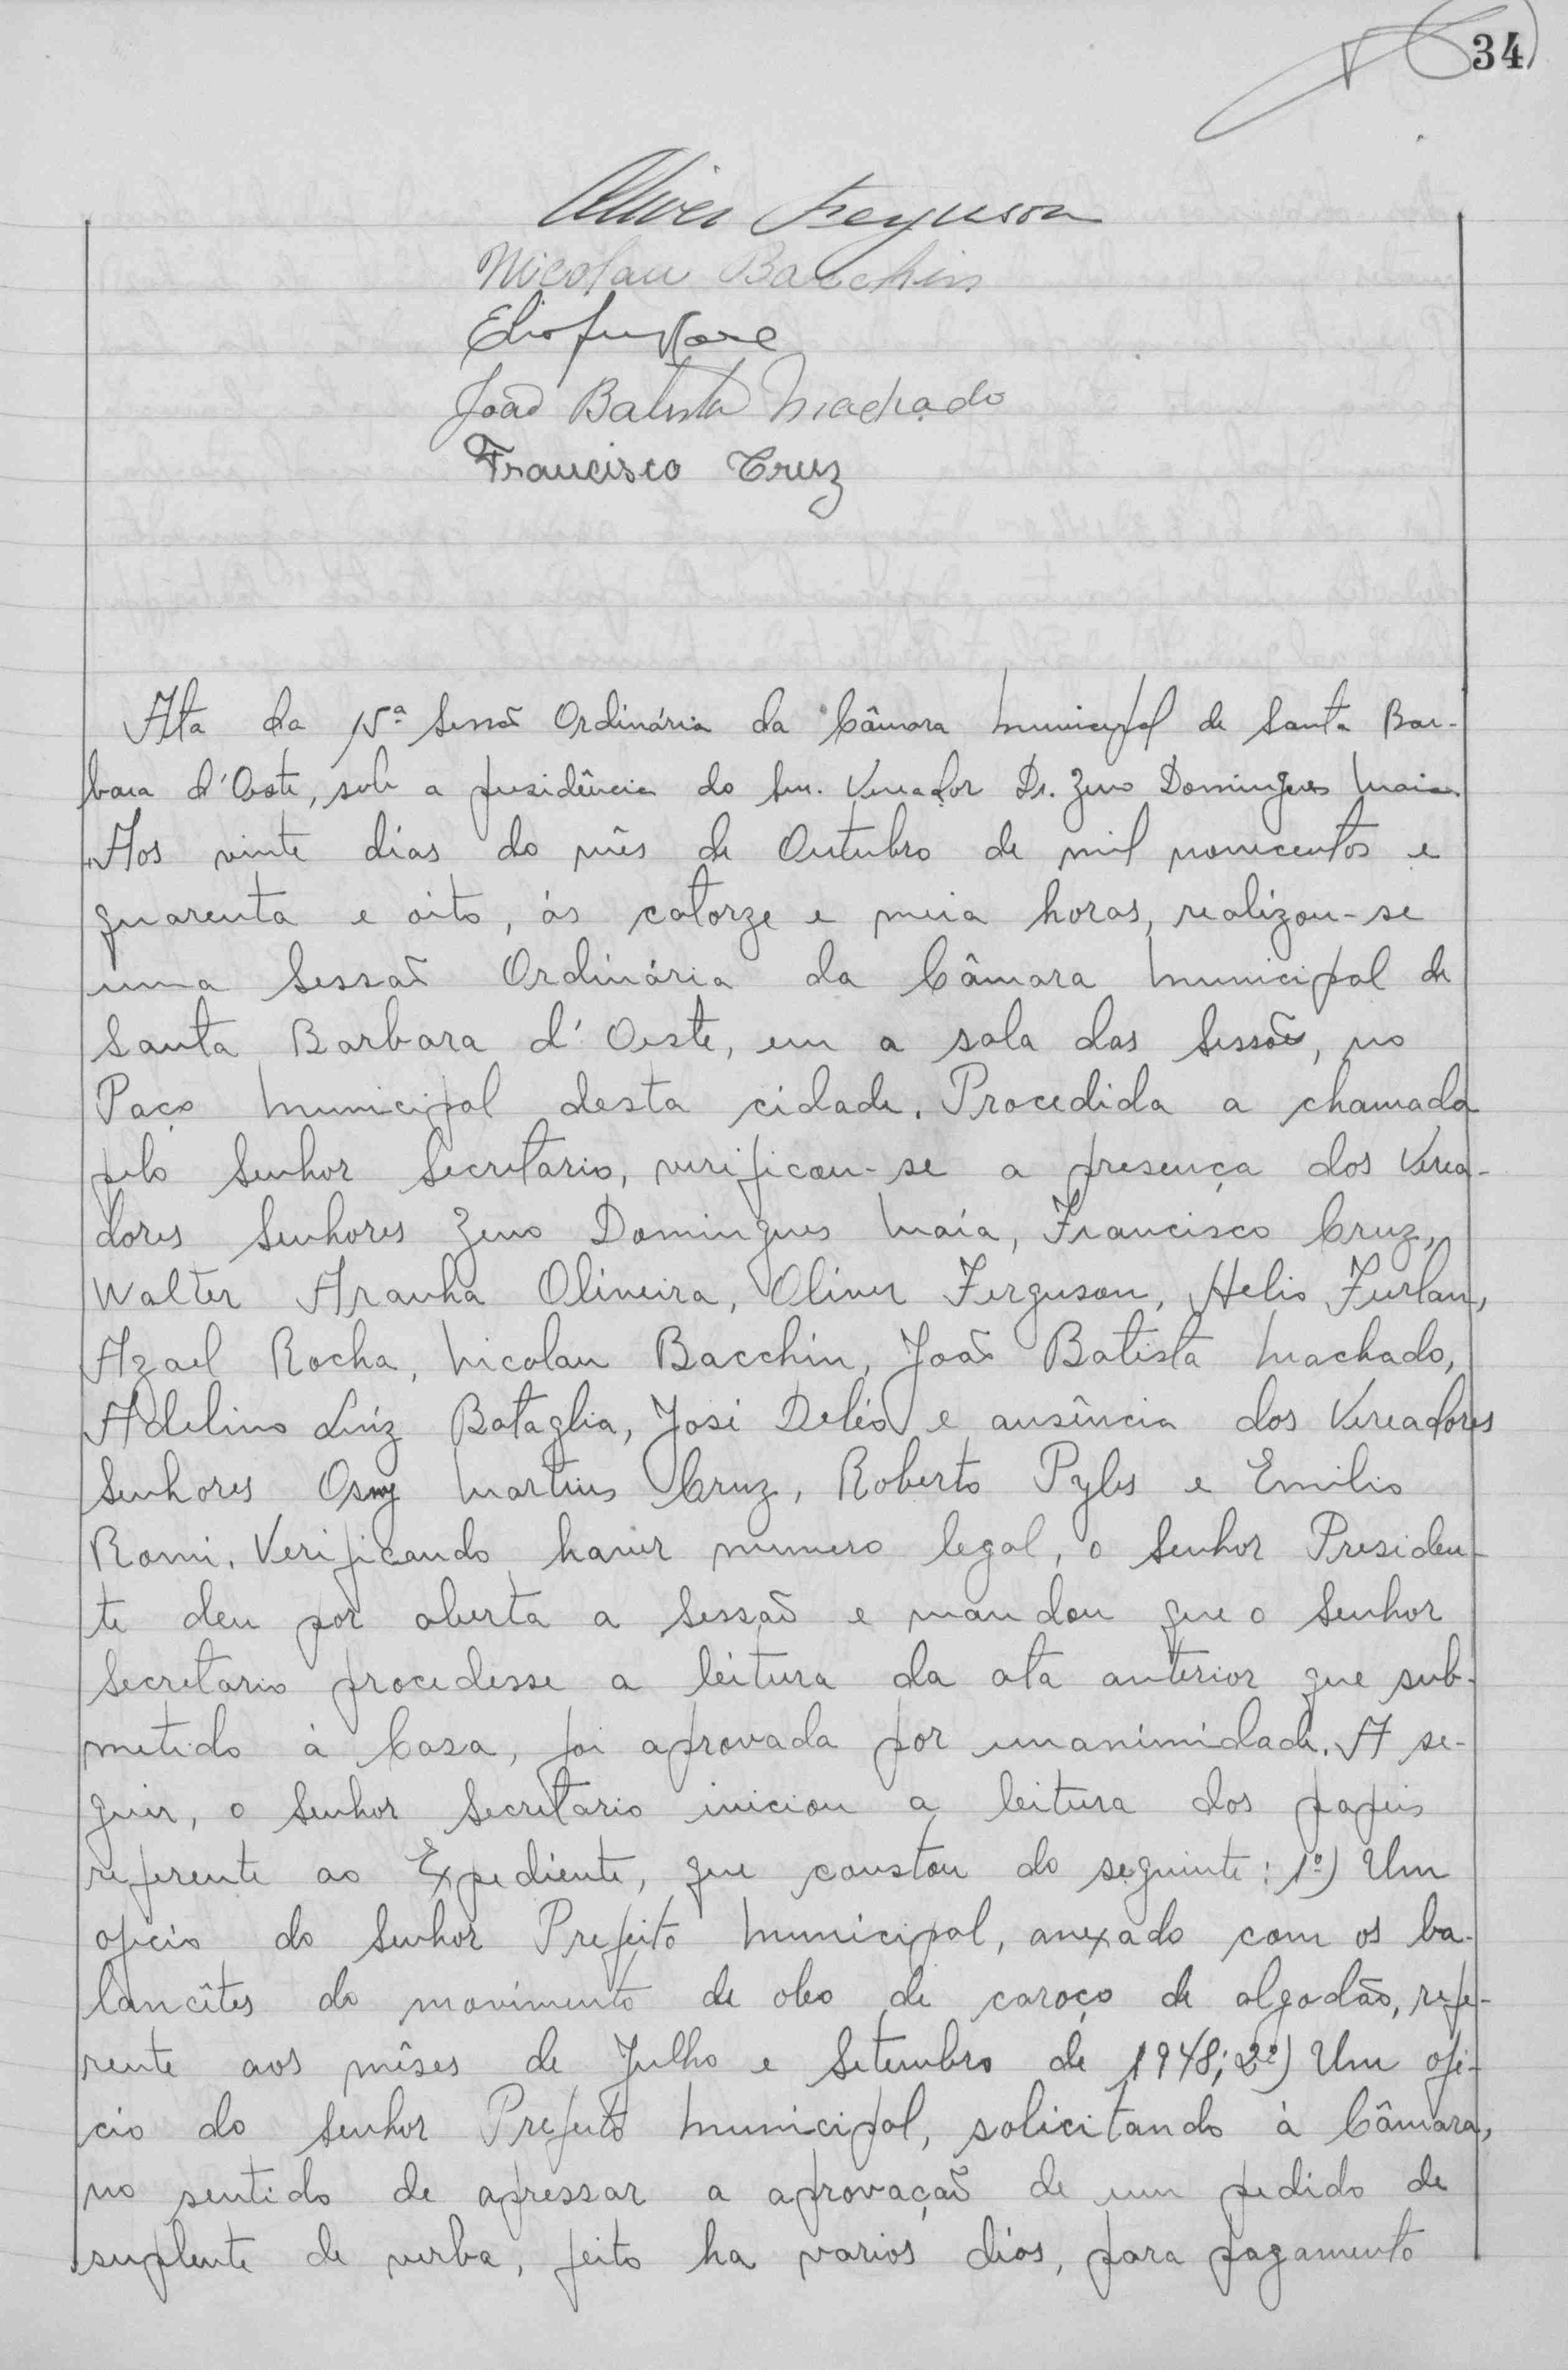 34
Oliver Ferguson
Nicolau Bacchin
João Batista Machado
Francisco Cruz
Ata da 15ª Sessão Ordinária da Câmara Municipal de Santa Bar-
bara d'Oeste, sob a presidência do Snr. Vereador Dr. Zeno Domingues Maia
Aos vinte dias do mês de Outubro de mil novecentos e
quarenta e oito, ás catorze e meia horas, realizou-se
uma Sessão Ordinária da Câmara Municipal de
Santa Barbara d'Oeste, em a sala das Sessões, no
Paço Municipal desta cidade. Procedida a chamada
pelo Senhor Secretario, verificou-se a presença dos Verea-
dores Senhores Zeno Domingues Maia, Francisco Cruz,
Walter Aranha Oliveira, Oliver Ferguson, Helio Furlan,
Azael Rocha, Nicolau Bacchin, João Batista Machado,
Adelino Luíz Bataglia, José Deléo e ausência dos Vereadores
Senhores Osny Martins Cruz, Roberto Pyles e Emilio
Romi. Verificando haver numero legal, o Senhor Presiden-
te deu por aberta a Sessão e mandou que o Senhor
Secretario procedesse a leitura da ata anterior que sub-
metido à Casa, foi aprovada por unanimidade. A se-
guir, o Senhor Secretario iniciou a leitura dos papeis
referente ao Expediente, que constou do seguinte: 1º) Um
oficio do Senhor Prefeito Municipal, anexado com os ba-
lancêtes do movimento de oleo de caroço de algodão, refe-
rente aos mêses de Julho e Setembro de 1948; 2º) Um ofi-
cio do Senhor Prefeito Municipal, solicitando à Câmara,
no sentido de apressar a aprovação de um pedido de
suplente de verba, feito ha varios dias, para pagamento